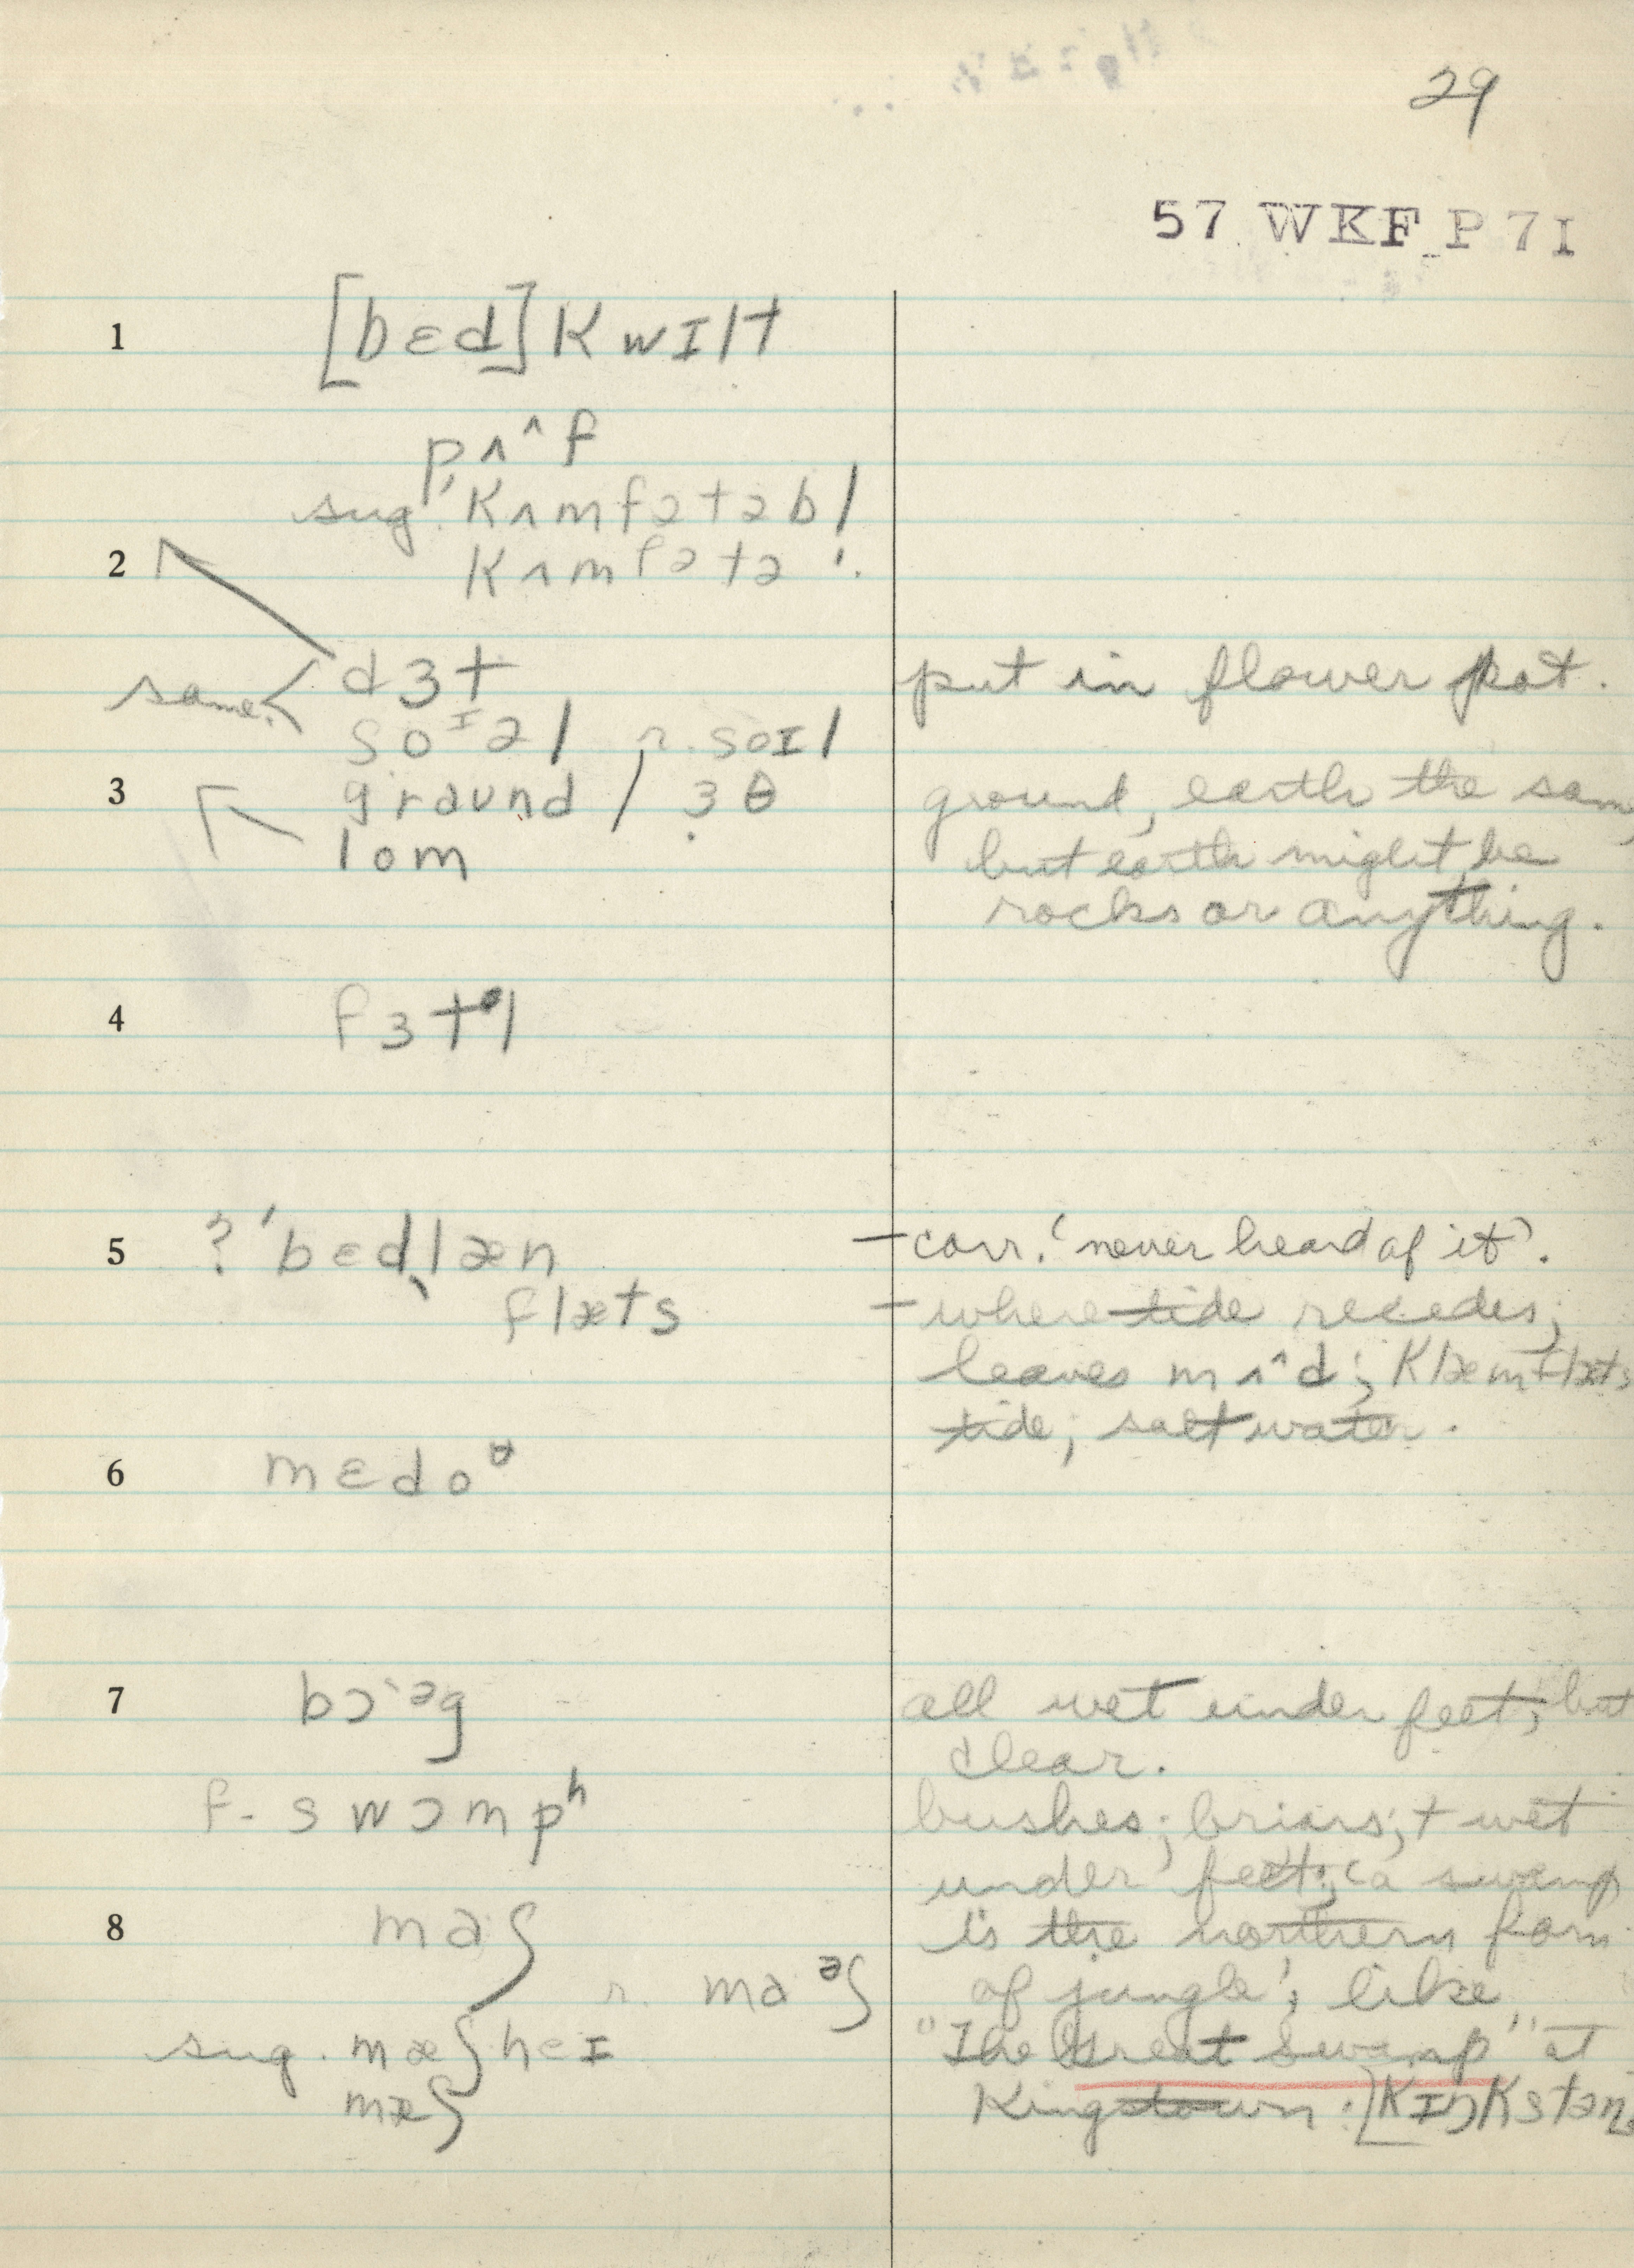 29
57 WKF P 7I
1 [bɛd] kwɪlt
pʌ^f
sug. kʌmfətəbl
2 kʌmfətə !.
dɜt put in flower pot.
same.
soᶦəl r. soɪl
3 graund / ɜθ ground, earth the same,
lom but earth might be
rocks or anything.
4 fɜtᵊl
5 ? 'bɛdˌlæn – corr. 'never heard of it'.
flæts – where tide recedes,
leaves mʌ^d; klæmflæts
tide, salt water.
6 mɛdoᶷ
7 bɔ·ᵊg all wet under feet, but
clear.
f- swɔmpʰ bushes; briars; + wet
under feet; 'a swamp
8 maʃ is the northern form
r. maᵊʃ of jungle'; like
sug. mæʃ heɪ "The Great Swamp" at
mæʃ Kingstown. [kɪŋkstən